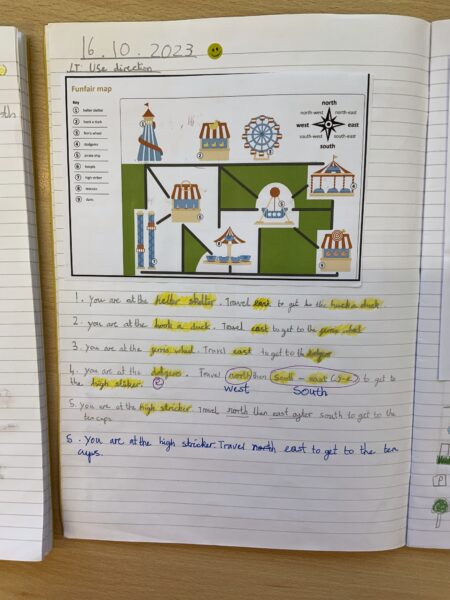 16.10.2023
LT: Use direction
Funfair map
Key
1 helter skelter
2 hook a duck
3 ferris wheel
4 dodgems
5 pirate ship
6 hoopla
7 high striker
8 teacups
9 darts
north
north-west north-east
west east
south-west south-east
south
1. you are at the helter skelter. Travel east to get to the hook a duck
2. you are at the hook a duck. Travel east to get to the
3. you are at the wheel. Travel east to get to the
4. you are at the dodgems. Travel north then south-east to get to
the high
west South
5. you are at the high stricker. Travel north then east south to get to the
ten cups.
5. you are at the high stricker. Travel north east to get to the ten
cups.